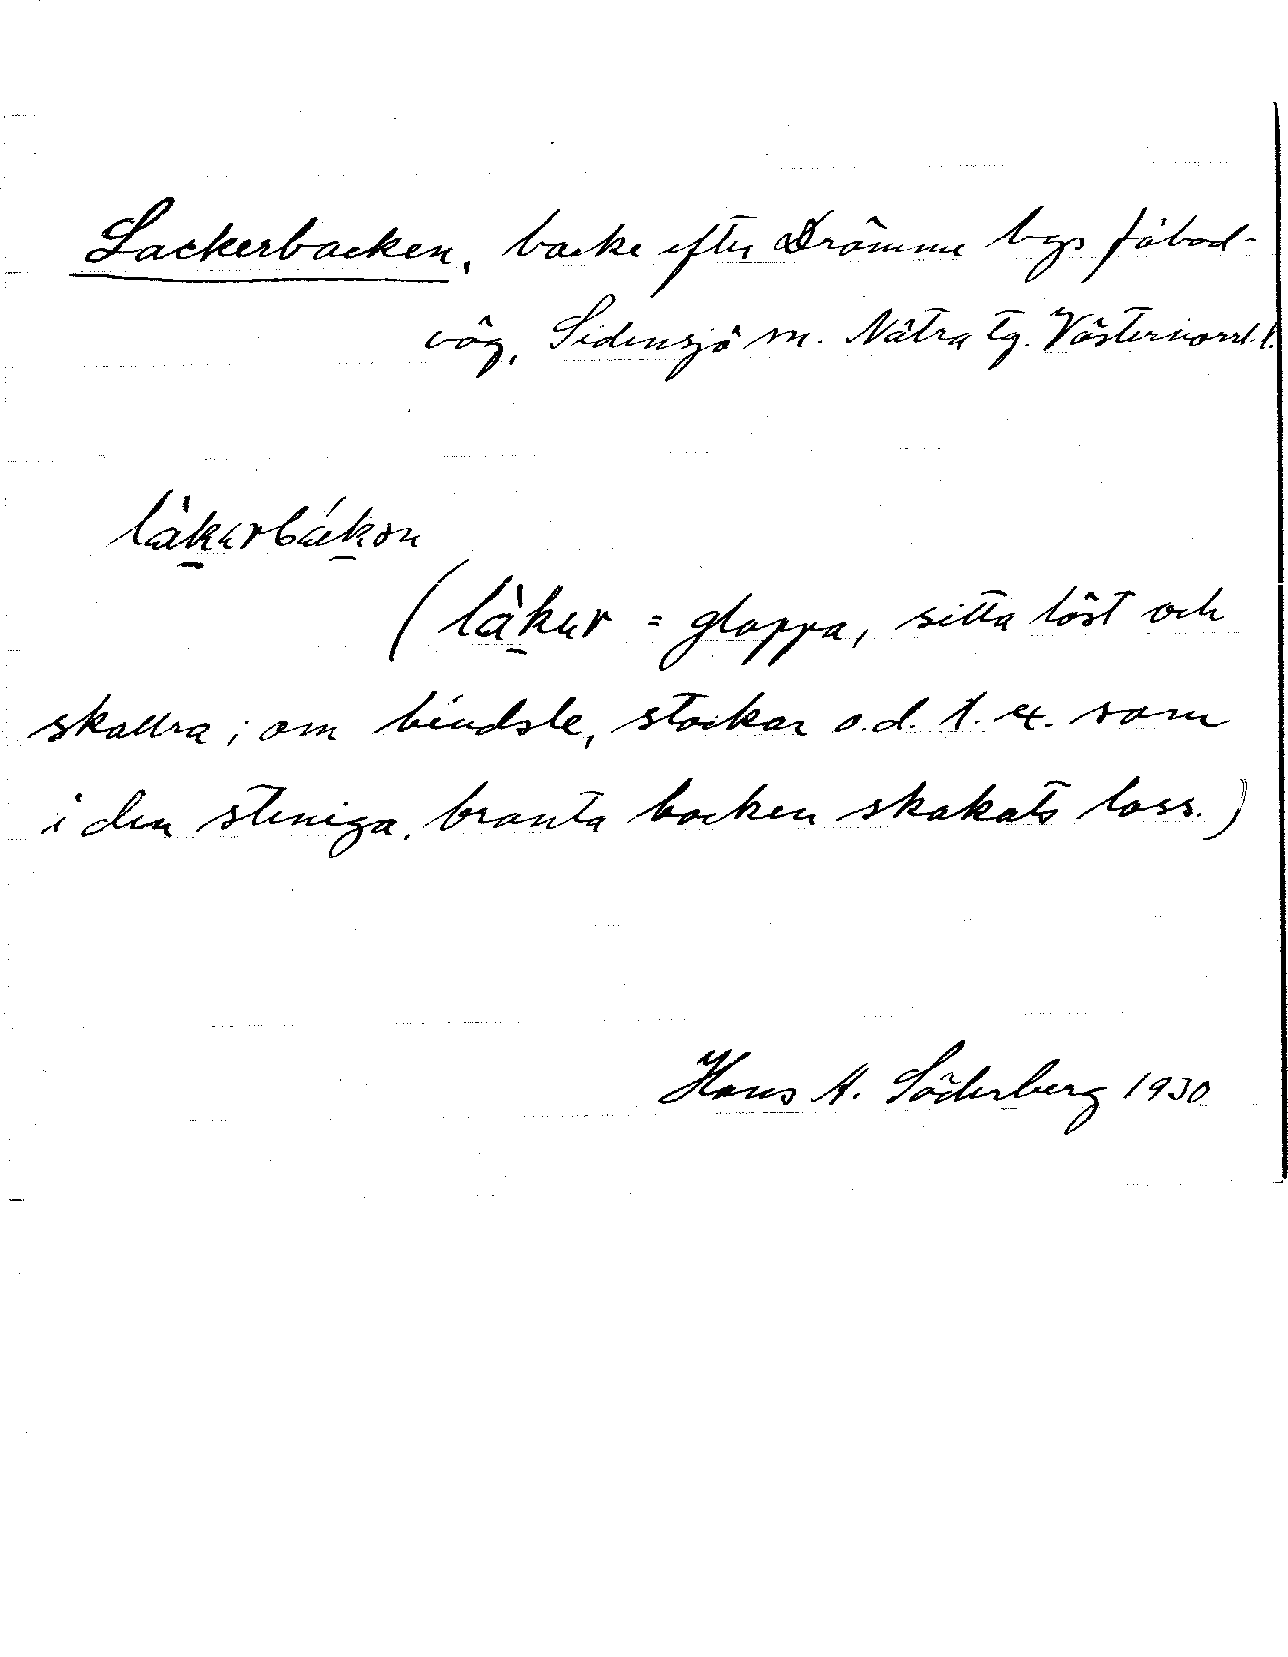 Lackerbacken, backe efter Drömme bys fäbod-
väg, Sidensjö sn. Nätra tg. Västernorrl. l.
làkərbákən
(làkər = glappa, sitta löst och
skallra; om bindsle, stockar o.d. t. ex. som
i den steniga, branta backen skakats loss.)
Hans A. Söderberg 1930